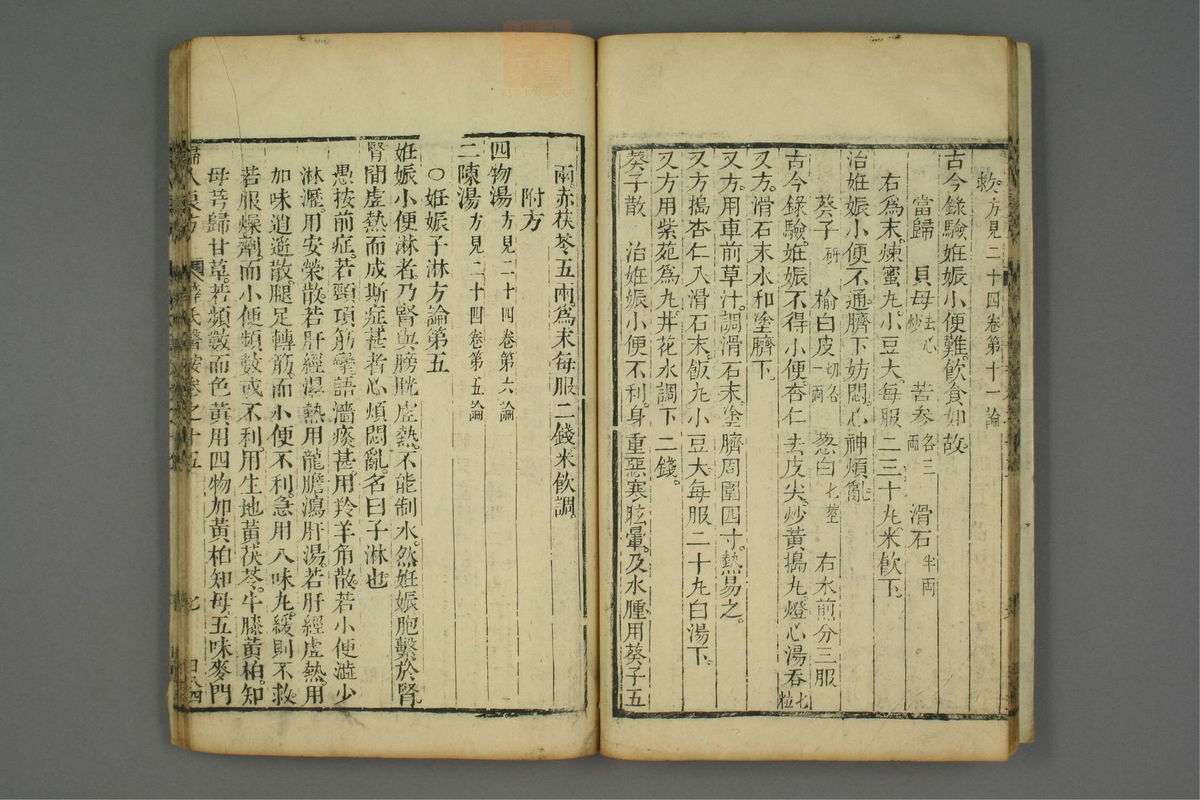 救。方見二十四卷第十一論
古今錄驗。姙娠小便難。飲食如故。
當歸 貝母去心炒 苦參各三両 滑石半両
右為末。煉蜜丸。小豆大。每服二三十丸。米飲下。
治姙娠小便不通。臍下妨悶。心神煩亂。
葵子研 榆白皮切各一両 葱白七莖 右水煎分三服
古今錄驗。姙娠不得小便。杏仁去皮尖。炒黃搗丸。燈心湯吞七粒
又方。滑石末水和塗臍下。
又方。用車前草汁。調滑石末。塗臍周圍四寸。熱易之。
又方搗杏仁入滑石末。飯丸小豆大。每服二十丸白湯下。
又方用紫苑為丸。井花水調下二錢。
葵子散 治姙娠小便不利。身重惡寒眩暈。及水腫用葵子五
兩赤茯苓五兩。為末每服二錢米飲調。
附方
四物湯方見二十四卷第六論
二陳湯方見二十四卷第五論
○姙娠子淋方論第五
姙娠小便淋者。乃腎與膀胱虛熱。不能制水。然姙娠胞繫於腎。
腎間虛熱而成斯症甚者心煩悶亂。名曰子淋也。
愚按前症。若頸項筋攣。語濇痰甚。用羚羊角散。若小便澁少
淋瀝。用安榮散。若肝經濕熱。用龍膽瀉肝湯。若肝經虛熱。用
加味逍遙散。腿足轉筋。而小便不利。急用八味丸。緩則不救。
若服燥劑。而小便頻數。或不利。用生地黃。茯苓。牛膝黃柏。知
母芎歸甘草。若頻數而色黃用四物加黃柏知母五味麥門
婦人良方 薛氏醫按卷之十五 七